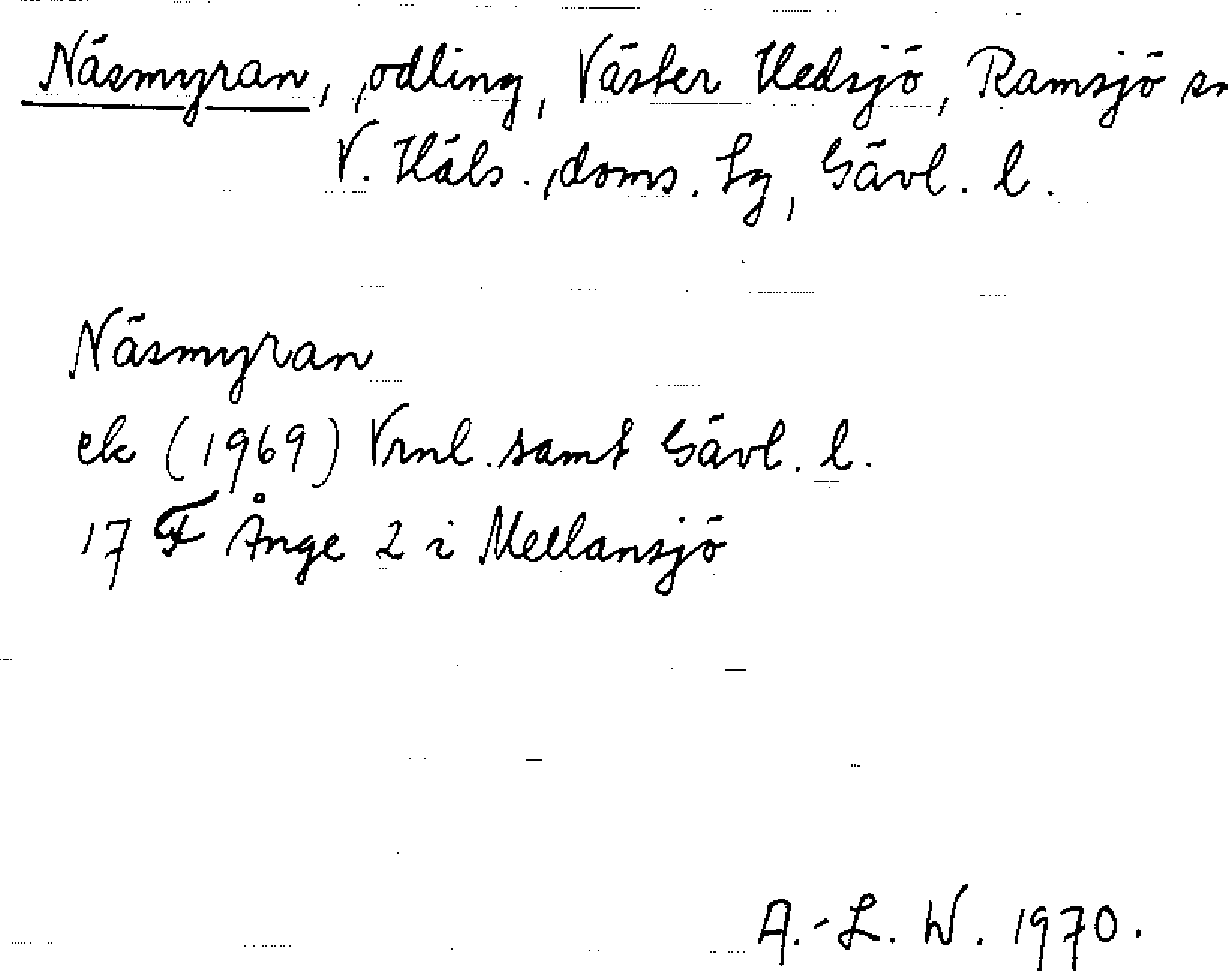 Näsmyran, odling, Väster Hedsjö, Ramsjö sn
V. Häls. doms. Sg, Gävl. l.
Näsmyran
ek (1969) Vrnl. samt Gävl. l.
17 F Ånge 2 i Mellansjö
A.-L. W. 1970.